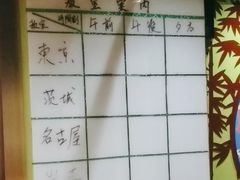 教室案内
教室 時間割 午前 午後 夕方
東京
茨城
名古屋